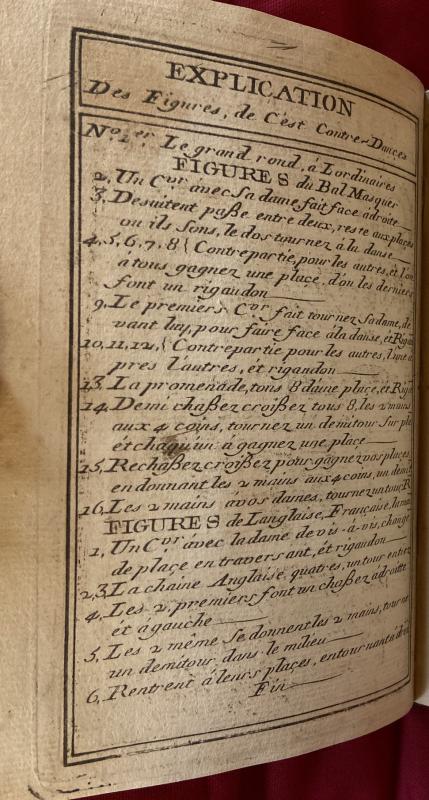 EXPLICATION
Des Figures, de C'est Contre-Dances
N.o 1.er Le grand rond, à Lordinaires
FIGURES du Bal Masquer
2, Un C.vr avec sa dame fait face adroite
3, Desuitent paße entre deux, reste aux places
ou ils sons, le dos tournez à la danse
4, 5, 6, 7, 8 { Contrepartie, pour les autres, et l'on
à tous gagnez une place, d'on les derniers
font un rigaudon
9, Le premiers C.vr fait tournez sa dame, de
vant luy, pour faire face à la danse, et Rig
10, 11, 12, { Contrepartie pour les autres, l'une a
pres l'autres, et rigaudon
13, La promenade, tous 8 d'une place, et Rig
14, Demi chaßez croißez tous 8, les 2 mains
aux 4 coins, tournez un demitour sur
et chaqu'un à gagnez une place
15, Rechaßez croißez pour gagnez vos places
en donnant les 2 mains aux 4 coins, un demit
16, Les 2 mains à vos dames, tournez un tour, R
FIGURES de Langlaise, Française,
1, Un C.vr avec la dame de vis-à-vis, change
de plaçe en traversant, ét rigaudon
2, 3, La chaine Anglaise, quatres, un tour entier
4, Les 2, premiers font un chaßez adroitte
ét à gauche
5, Les 2 même se donnent les 2 mains, tour
un demitour, dans le milieu
6, Rentrent à leurs plaçes, en tournant à
Fin